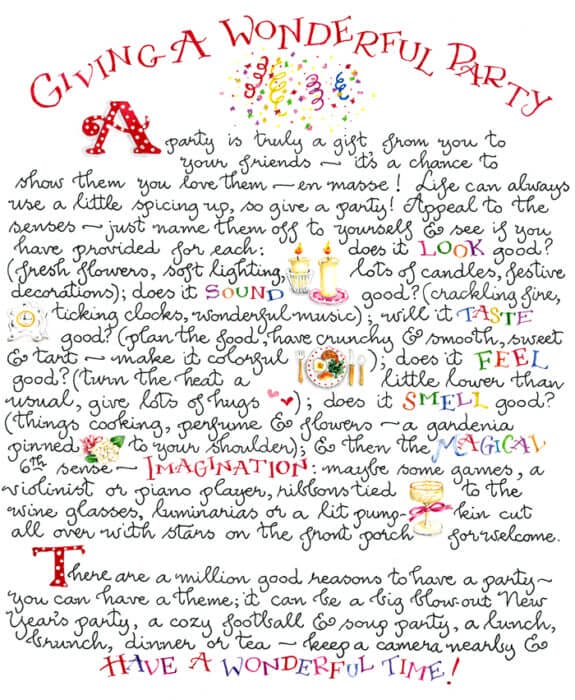 GIVING A WONDERFUL PARTY
A party is truly a gift, from you to
your friends ~ it's a chance to
show them you love them — en masse! Life can always
use a little spicing up, so give a party! Appeal to the
senses — just name them off to yourself & see if you
have provided for each: does it LOOK good?
(fresh flowers, soft lighting, lots of candles, festive
decorations); does it SOUND good? (crackling fire,
ticking clocks, wonderful music); will it TASTE
good? (plan the food, have crunchy & smooth, sweet
& tart ~ make it colorful ); does it FEEL
good? (turn the heat a little lower than
usual, give lots of hugs ); does it SMELL good?
(things cooking, perfume & flowers ~ a gardenia
pinned to your shoulder); & then the MAGICAL
6th sense ~ IMAGINATION: maybe some games, a
violinist or piano player, ribbons tied to the
wine glasses, luminarias or a lit pump- kin cut
all over with stars on the front porch for welcome.
There are a million good reasons to have a party ~
you can have a theme; it can be a big blow-out New
Year's party, a cozy football & soup party, a lunch,
brunch, dinner or tea ~ keep a camera nearby &
HAVE A WONDERFUL TIME!